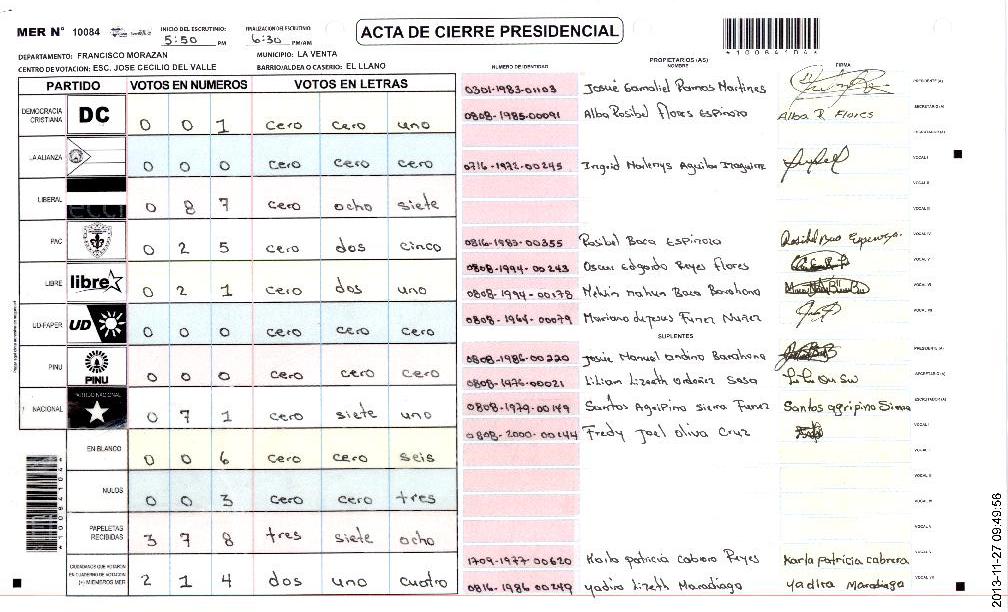 MER N° 10084
INICIO DEL ESCRUTINIO:
5:50 PM
FINALIZACION DEL ESCRUTINIO
6:30 PM/AM
ACTA DE CIERRE PRESIDENCIAL
DEPARTAMENTO: FRANCISCO MORAZAN
MUNICIPIO: LA VENTA
CENTRO DE VOTACION: ESC. JOSE CECILIO DEL VALLE
BARRIO/ALDEA O CASERIO: EL LLANO
PARTIDO VOTOS EN NUMEROS VOTOS EN LETRAS
DEMOCRACIA CRISTIANA DC 0 0 1 cero cero uno
LA ALIANZA 0 0 0 cero cero cero
LIBERAL 0 8 7 cero ocho siete
PAC 0 2 5 cero dos cinco
LIBRE libre 0 2 1 cero dos uno
UD/FAPER UD 0 0 0 cero cero cero
PINU PINU 0 0 0 cero cero cero
NACIONAL PARTIDO NACIONAL 0 7 1 cero siete uno
EN BLANCO 0 0 6 cero cero seis
NULOS 0 0 3 cero cero tres
PAPELETAS RECIBIDAS 3 7 8 tres siete ocho
CIUDADANOS QUE VOTARON EN CUADERNO DE VOTACION (+) MIEMBROS MER 2 1 4 dos uno cuatro
NUMERO DE IDENTIDAD PROPIETARIOS (AS) NOMBRE FIRMA
0301-1983-01103 Josué Gamaliel Ramos Martines PRESIDENTE (A)
0808-1985-00091 Alba Rosibel Flores Espinoza Alba R Flores SECRETARIO (A)
0716-1972-00245 Ingrid Marlenys Aguilar Izaguirre VOCAL I
VOCAL II
VOCAL III
0816-1983-00355 Rosibel Baca Espinoza VOCAL IV
0808-1994-00243 Oscar Edgardo Reyes Flores VOCAL V
0808-1994-00178 Melvin nahun Baca Barahona VOCAL VI
0808-1964-00079 Mariano de jesus Funez Nuñez VOCAL VII
SUPLENTES
0808-1986-00220 Josue Manuel andino Barahona PRESIDENTE (A)
0808-1976-00021 Lilian Lizeth ordoñez Sosa
0808-1979-00149 Santos Agripino sierra Funez Santos agripino Sierra
0808-2000-00144 Fredy Joel oliva Cruz VOCAL I
1709-1977-00620 Karla patricia cabrera Reyes Karla patricia cabrera
0816-1986 00249 Yadira Lizeth Maradiaga yadira Maradiaga
2013-11-27 09:49:56